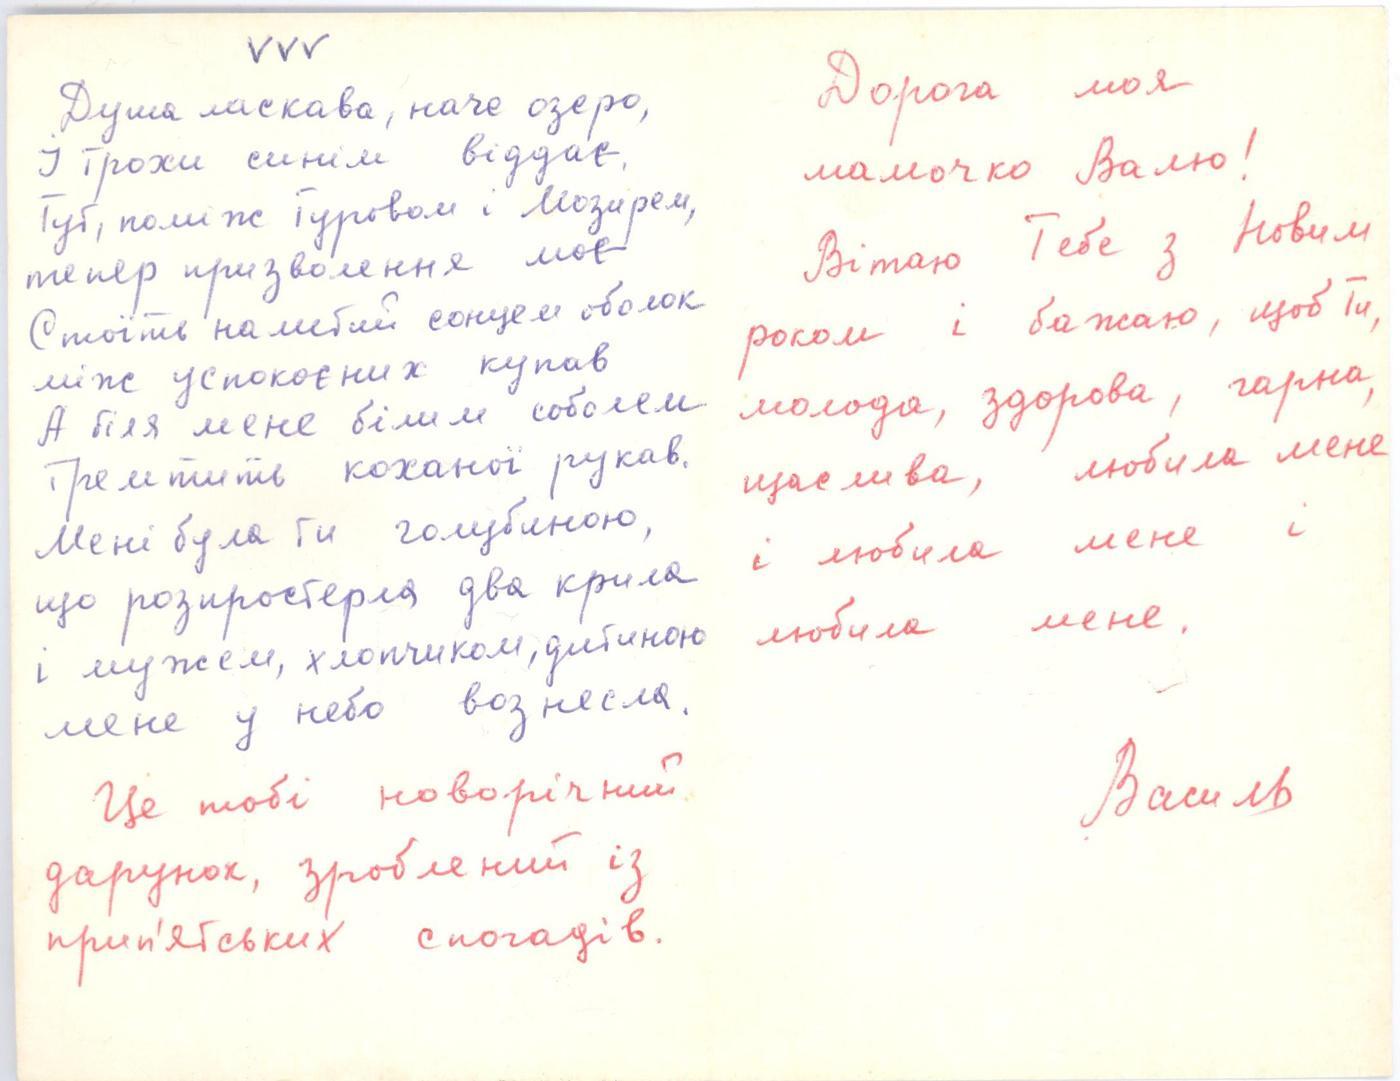 VVV
Душа ласкава, наче озеро,
І трохи синім віддає.
Тут, поміж Туровом і Мозирем,
тепер призволення моє
Стоїть налитий сонцем оболок
між успокоєних купав
А біля мене білим соболем
Тремтить коханої рукав.
Мені була ти голубиною,
що розпростерла два крила
і мужем, хлопчиком, дитиною
мене у небо вознесла.
Це тобі новорічний
дарунок, зроблений із
прип'ятських спогадів.
Дорога моя
мамочко Валю!
Вітаю Тебе з Новим
роком і бажаю, щоб Ти,
молода, здорова, гарна,
щаслива, любила мене
і любила мене і
любила мене.
Василь